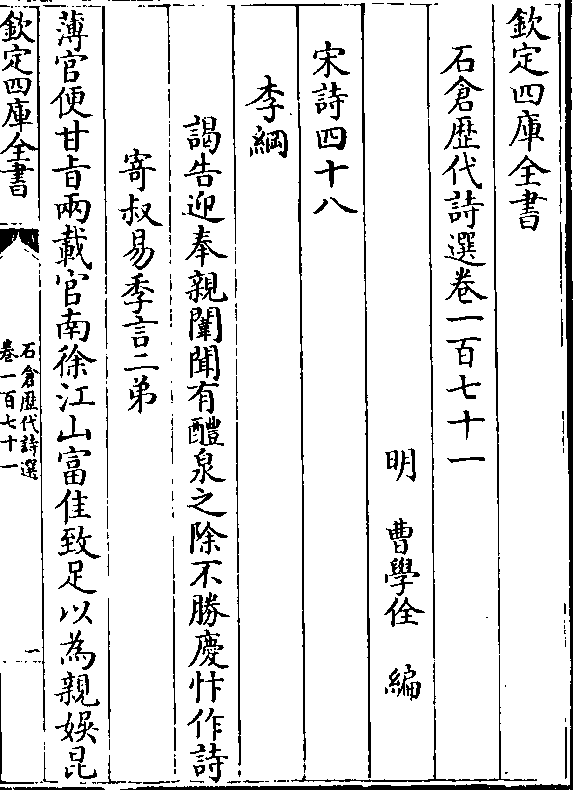 欽定四庫全書
石倉歴代詩選卷一百七十一
明 曹學佺 編
宋詩四十八
李綱
謁告迎奉親闈聞有醴泉之除不勝慶忭作詩
寄叔易季言二弟
薄官便甘旨兩載官南徐江山富佳致足以為親娛昆
欽定四庫全書
石倉歴代詩選
卷一百七十一
一